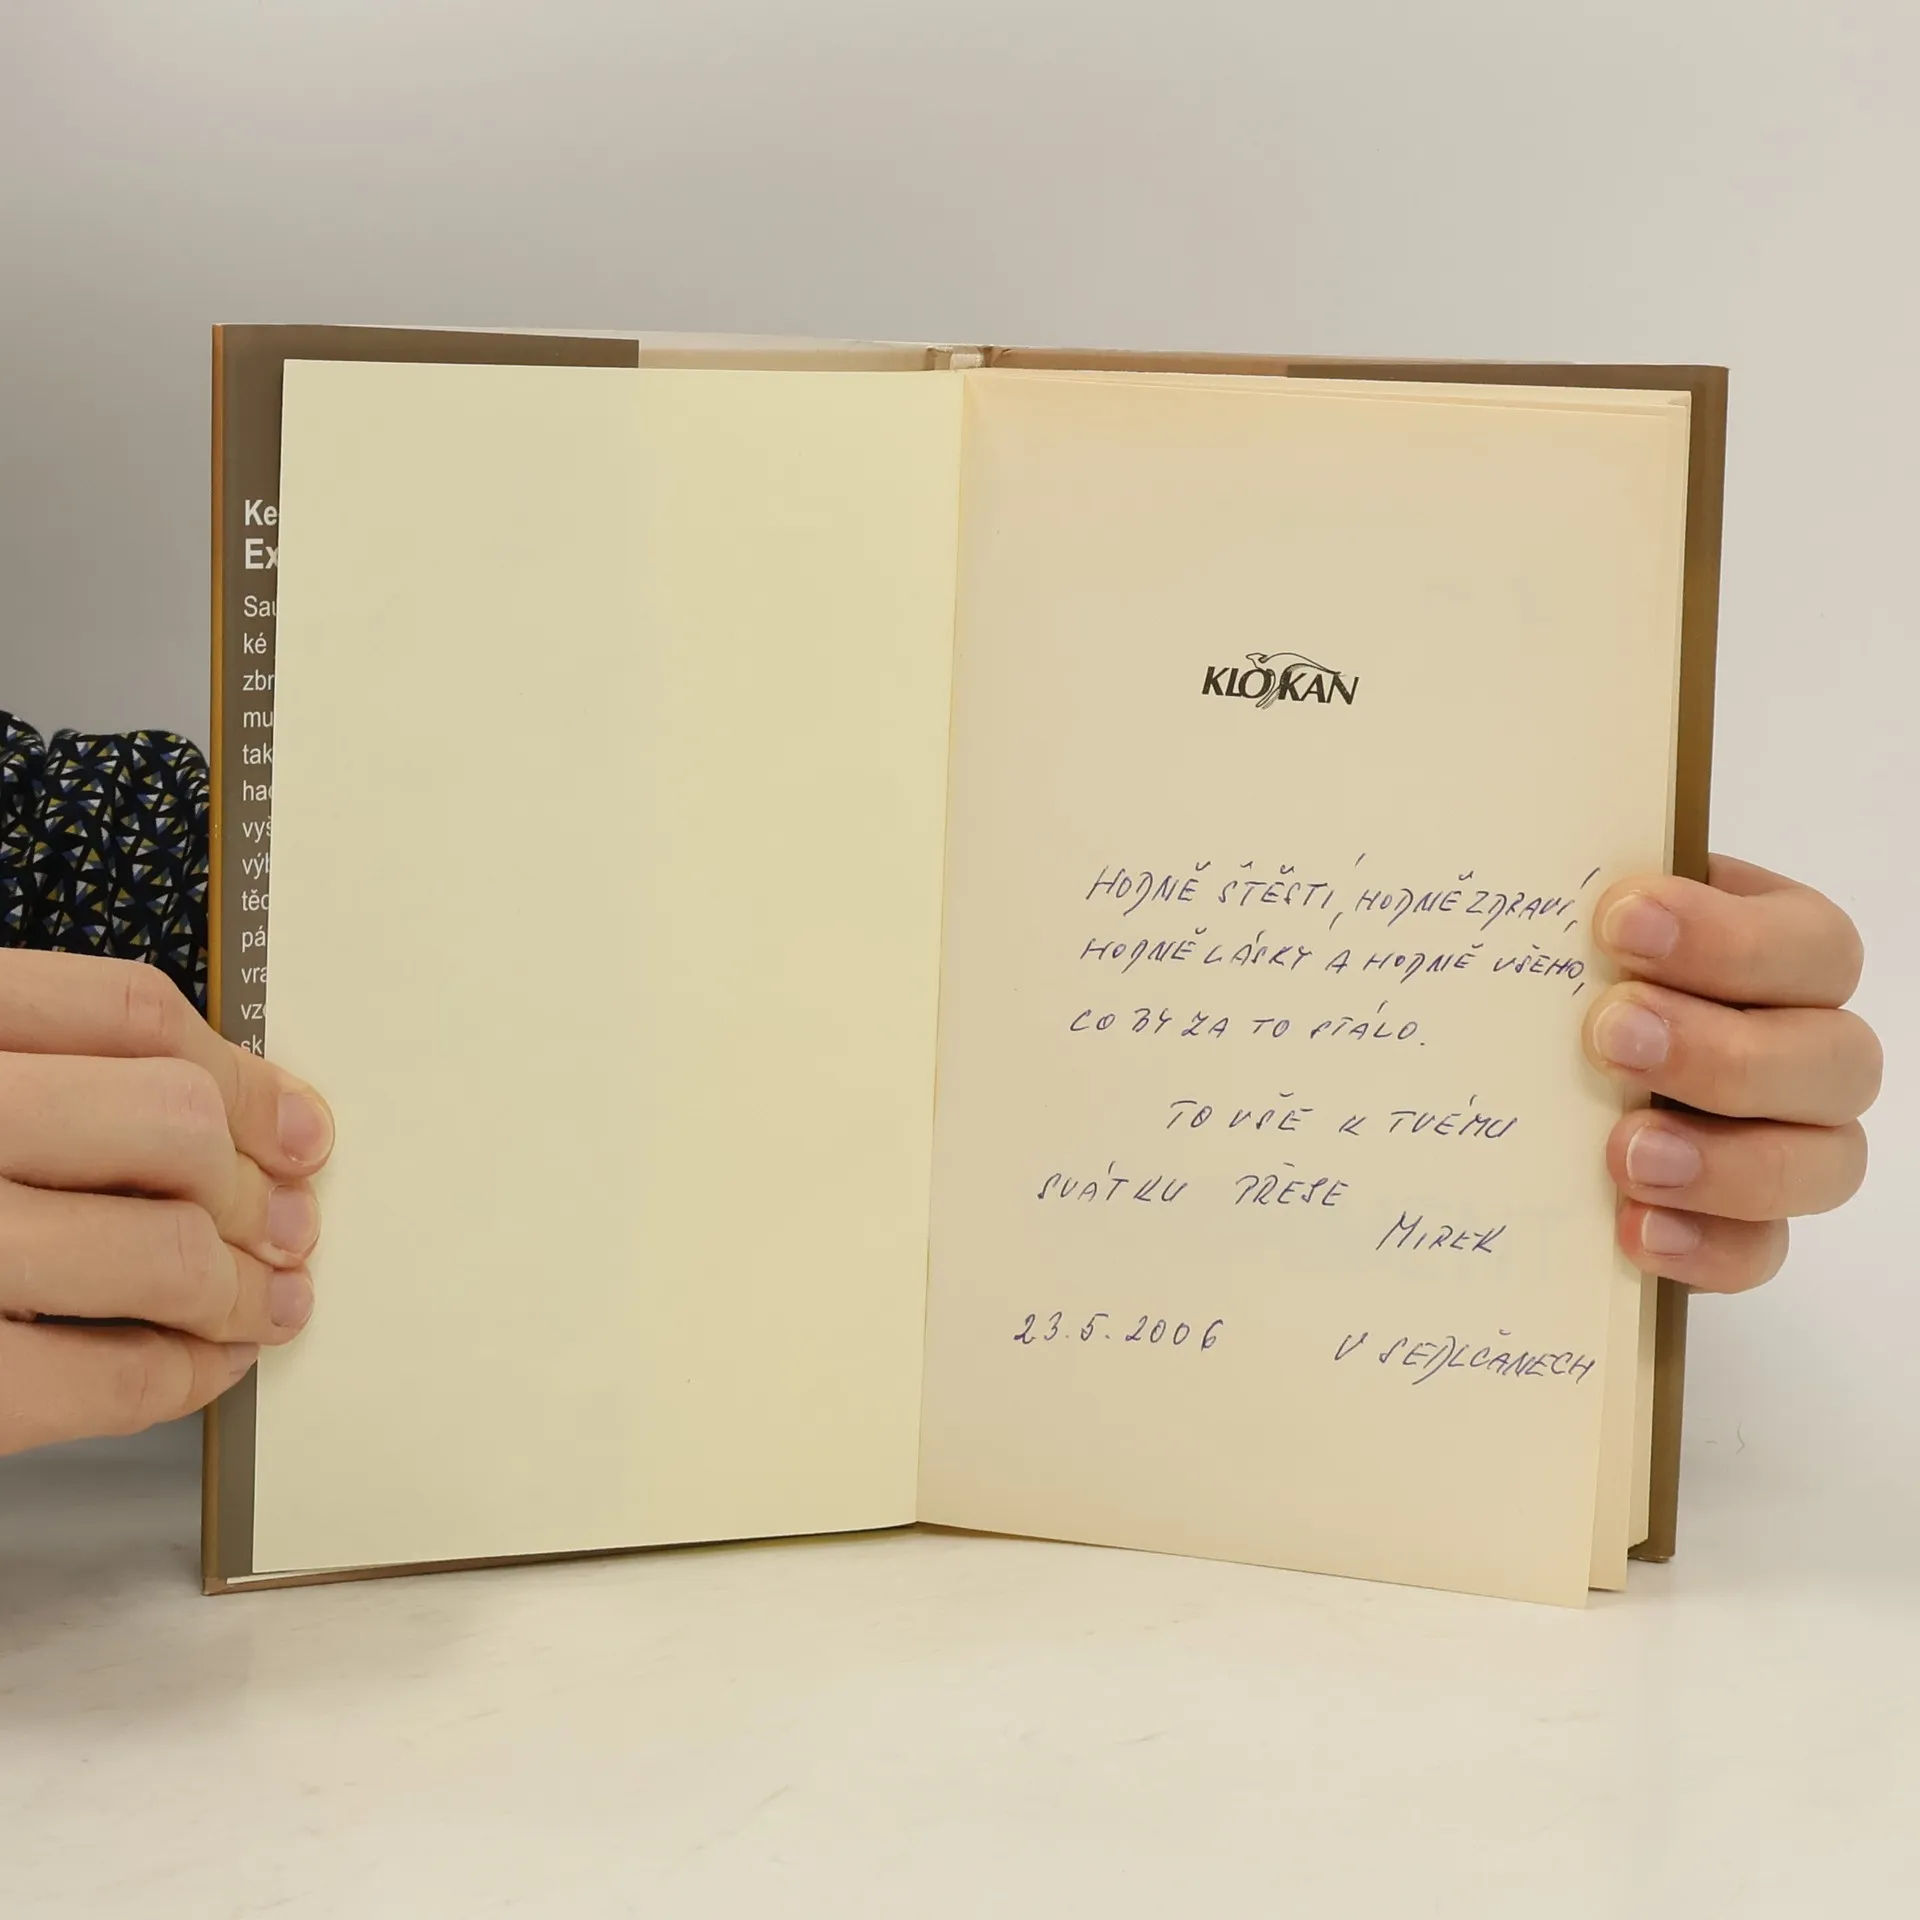 Ke
Ex
Sau
ké
zbr
mu
tak
hac
vyš
výb
těc
pá
vra
vzc
sk
KLOKAN
HODNĚ ŠTĚSTÍ, HODNĚ ZDRAVÍ,
HODNĚ LÁSKY A HODNĚ VŠEHO,
CO BY ZA TO STÁLO.
TO VŠE K TVÉMU
SVÁTKU PŘEJE
MIREK
23.5.2006 V SEDLČANECH